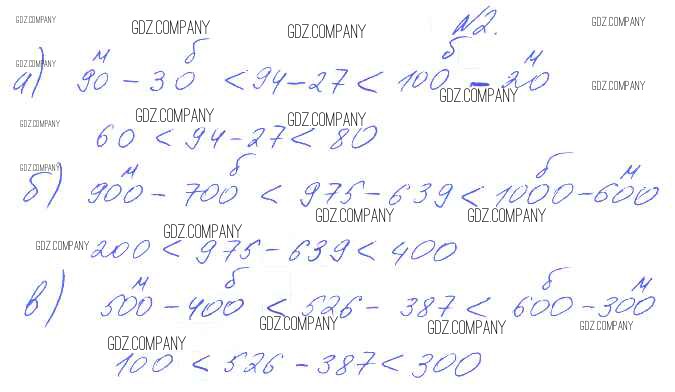 GDZ.COMPANY GDZ.COMPANY GDZ.COMPANY №2. GDZ.COMPANY
м б б м
а) 90 - 30 < 94 - 27 < 100 - 20
GDZ.COMPANY GDZ.COMPANY GDZ.COMPANY
GDZ.COMPANY GDZ.COMPANY GDZ.COMPANY
60 < 94 - 27 < 80
GDZ.COMPANY
м б б м
б) 900 - 700 < 975 - 639 < 1000 - 600
GDZ.COMPANY GDZ.COMPANY
GDZ.COMPANY GDZ.COMPANY
200 < 975 - 639 < 400
м б б м
в) 500 - 400 < 526 - 387 < 600 - 300
GDZ.COMPANY GDZ.COMPANY GDZ.COMPANY
GDZ.COMPANY
100 < 526 - 387 < 300